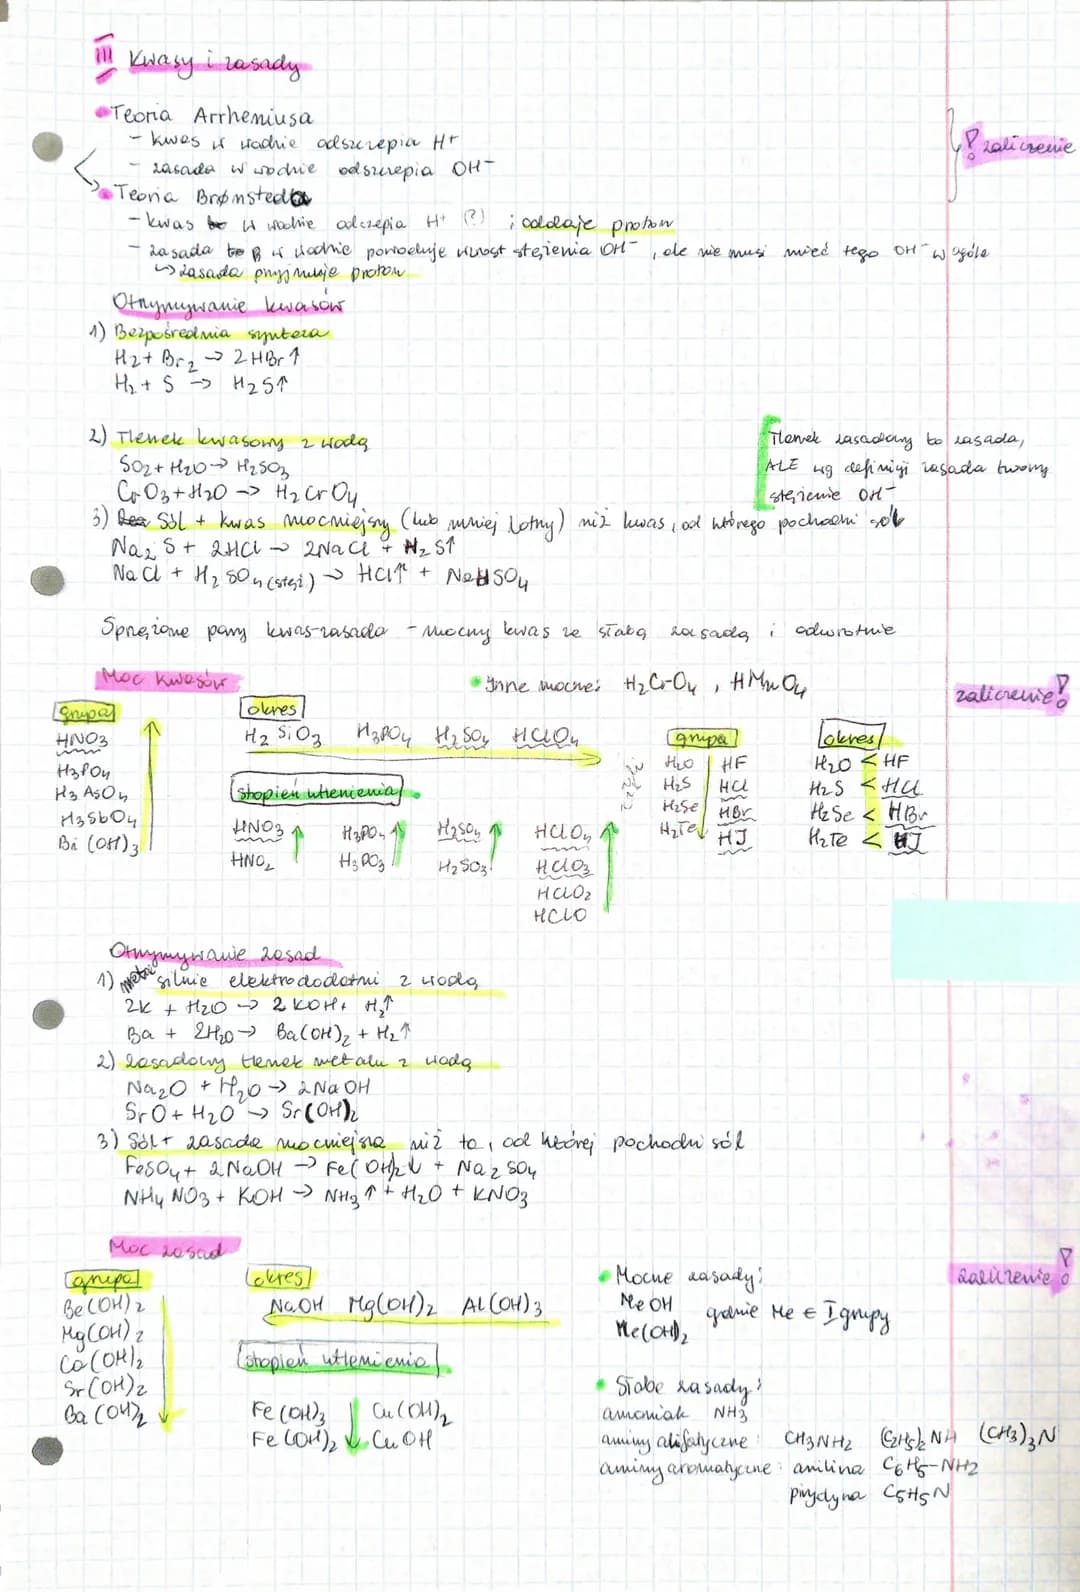 III Kwasy i zasady
Teoria Arrheniusa
- kwas w wodzie odszczepia H+
- zasada w wodzie odszczepia OH-
! zaliczenie
Teoria Brønsteda
- kwas w wodzie odczepia H+ (?) ; oddaje proton
- zasada B w wodzie powoduje wzrost stężenia OH-, ale nie musi mieć tego OH- w ogóle
↳ zasada przyjmuje proton
Otrzymywanie kwasów
1) Bezpośrednia synteza
H2 + Br2 → 2HBr↑
H2 + S → H2S↑
2) Tlenek kwasowy z wodą
SO2 + H2O → H2SO3
CrO3 + H2O → H2CrO4
Tlenek zasadowy to zasada,
ALE wg definicji zasada tworzy
stężenie OH-
3) Sól + kwas mocniejszy (lub mniej lotny) niż kwas, od którego pochodzi sól
Na2S + 2HCl → 2NaCl + H2S↑
NaCl + H2SO4 (stęż.) → HCl↑ + NaHSO4
Sprężone pary kwas-zasada - mocny kwas ze słabą zasadą i odwrotnie
Moc kwasów
Inne mocne: H2CrO4, HMnO4
zaliczenie!
grupa
HNO3
H3PO4
H3AsO4
H3SbO4
Bi(OH)3
okres
H2SiO3 H3PO4 H2SO4 HClO4
stopień utlenienia
HNO3 H3PO4 H2SO4 HClO4
HNO2 H3PO3 H2SO3 HClO3
HClO2
HClO
czyli
grupa
H2O HF
H2S HCl
H2Se HBr
H2Te HJ
okres
H2O < HF
H2S < HCl
H2Se < HBr
H2Te < HJ
Otrzymywanie zasad
1) metal silnie elektrododatni z wodą
2K + H2O → 2KOH + H2↑
Ba + 2H2O → Ba(OH)2 + H2↑
2) zasadowy tlenek metalu z wodą
Na2O + H2O → 2NaOH
SrO + H2O → Sr(OH)2
3) Sól + zasada mocniejsza niż ta, od której pochodzi sól
FeSO4 + 2NaOH → Fe(OH)2↓ + Na2SO4
NH4NO3 + KOH → NH3↑ + H2O + KNO3
Moc zasad
grupa
Be(OH)2
Mg(OH)2
Ca(OH)2
Sr(OH)2
Ba(OH)2
okres
NaOH Mg(OH)2 Al(OH)3
stopień utlenienia
Fe(OH)3 Cu(OH)2
Fe(OH)2 CuOH
Mocne zasady:
MeOH
Me(OH)2
gdzie Me ∈ I grupy
zaliczenie!
Słabe zasady:
amoniak NH3
aminy alifatyczne: CH3NH2 (C2H5)2NH (CH3)3N
aminy aromatyczne: anilina C6H5-NH2
pirydyna C5H5N